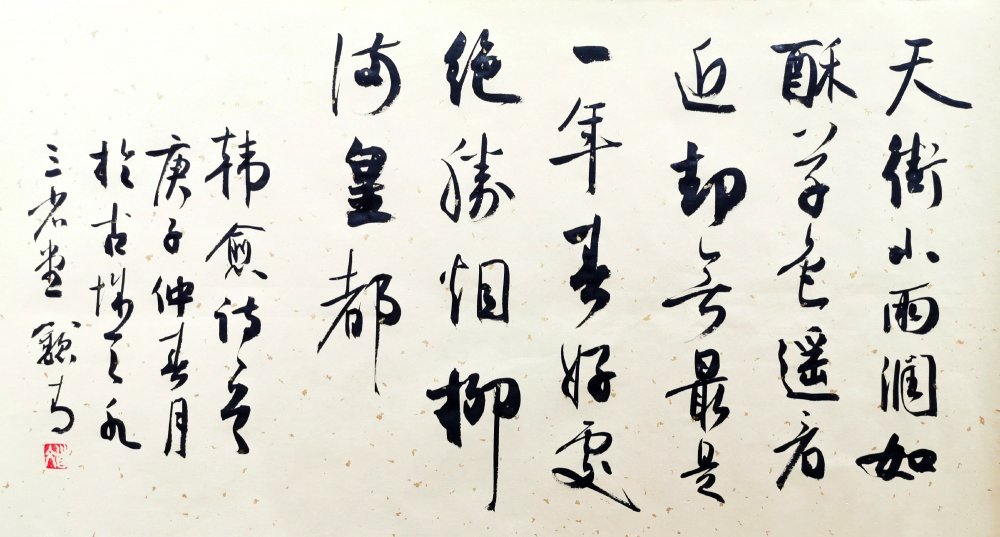 天街小雨润如
酥草色遥看
近却无最是
一年春好处
绝勝烟柳
满皇都
韩愈诗意
庚子仲春月
於古城之
三堂